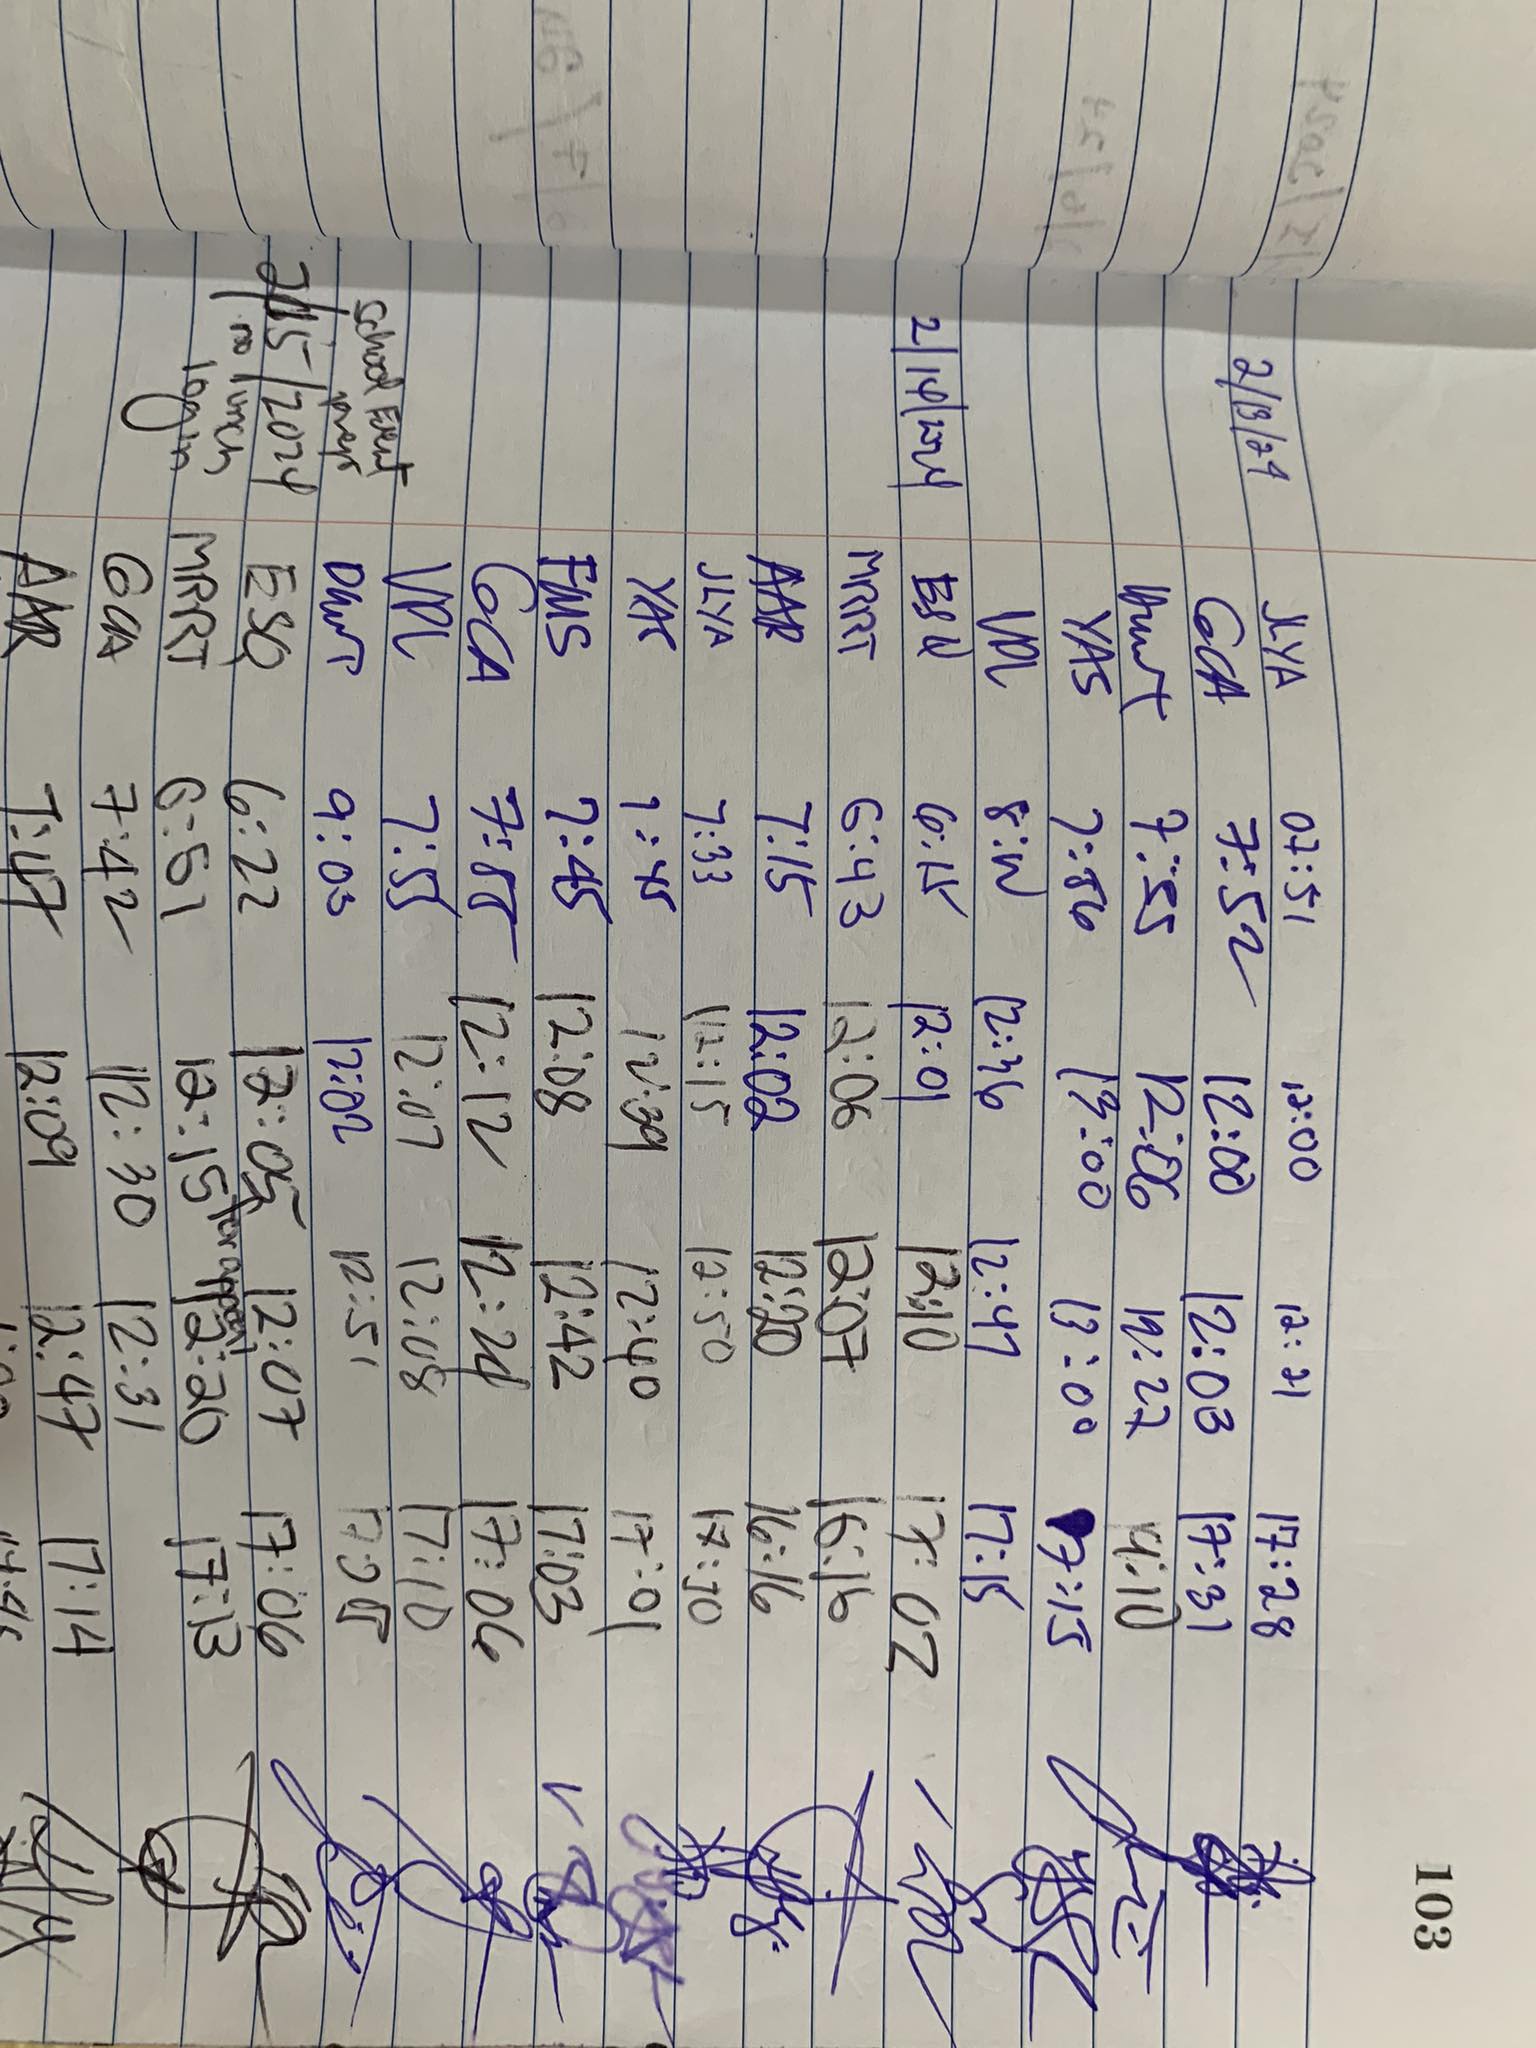 103
JLYA 07:51 12:00 12:21 17:28
2/13/24 GCA 7:52 12:00 12:03 17:31
7:55 12:06 12:27
YAS 7:56 13:00 13:00 17:15
VDL 12:36 12:47 17:15
2/14/2024 6:15 12:01 12:10 17:02
MRRT 6:43 12:06 12:07 16:16
AAR 7:15 12:02 12:20 16:16
JLYA 7:33 12:15 12:50 17:30
YAS 7:45 12:39 12:40 17:01
EMS 7:45 12:08 12:42 17:03
GCA 7:55 12:12 12:24 17:06
VDL 7:55 12:07 12:08 17:10
School Event 9:03 12:02 12:51
2/15/2024 ESQ 6:22 12:05 12:07 17:06
no lunch MRRT 6:51 12:15 12:20 17:13
login GCA 7:42 12:30 12:31
AAR 7:47 12:09 12:47 17:14